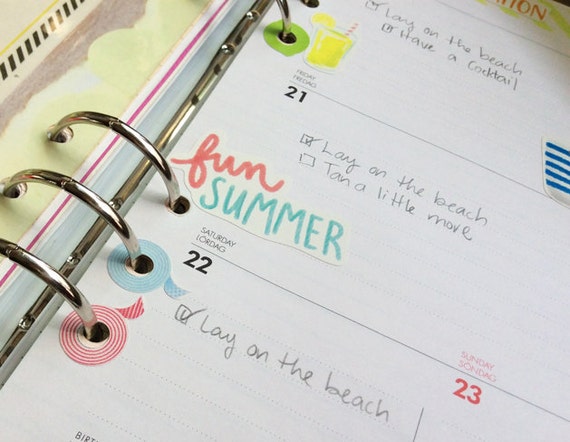 TION
Lay on the beach
Have a cocktail
FRIDAY
FREDAG
21
Lay on the beach
Tan a little more
fun
SUMMER
SATURDAY
LÖRDAG
22
Lay on the beach
SUNDAY
SÖNDAG
23
BIRT